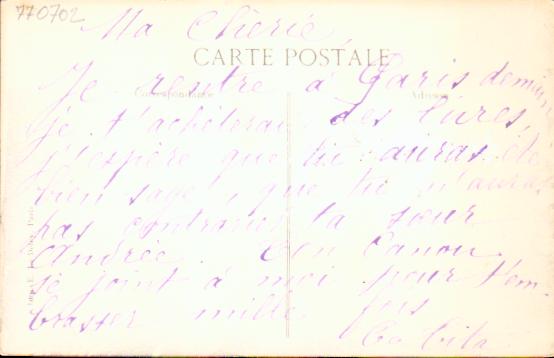 770702
Ma Chérie,
CARTE POSTALE
Correspondance
Adresse
Je rentre à Paris demain
je t'achèterai des livres,
j'espère que tu auras été
bien sage, que tu n'auras
pas contrarié ta sœur
Andrée. Ton
se joint à moi pour t'em-
brasser mille fois